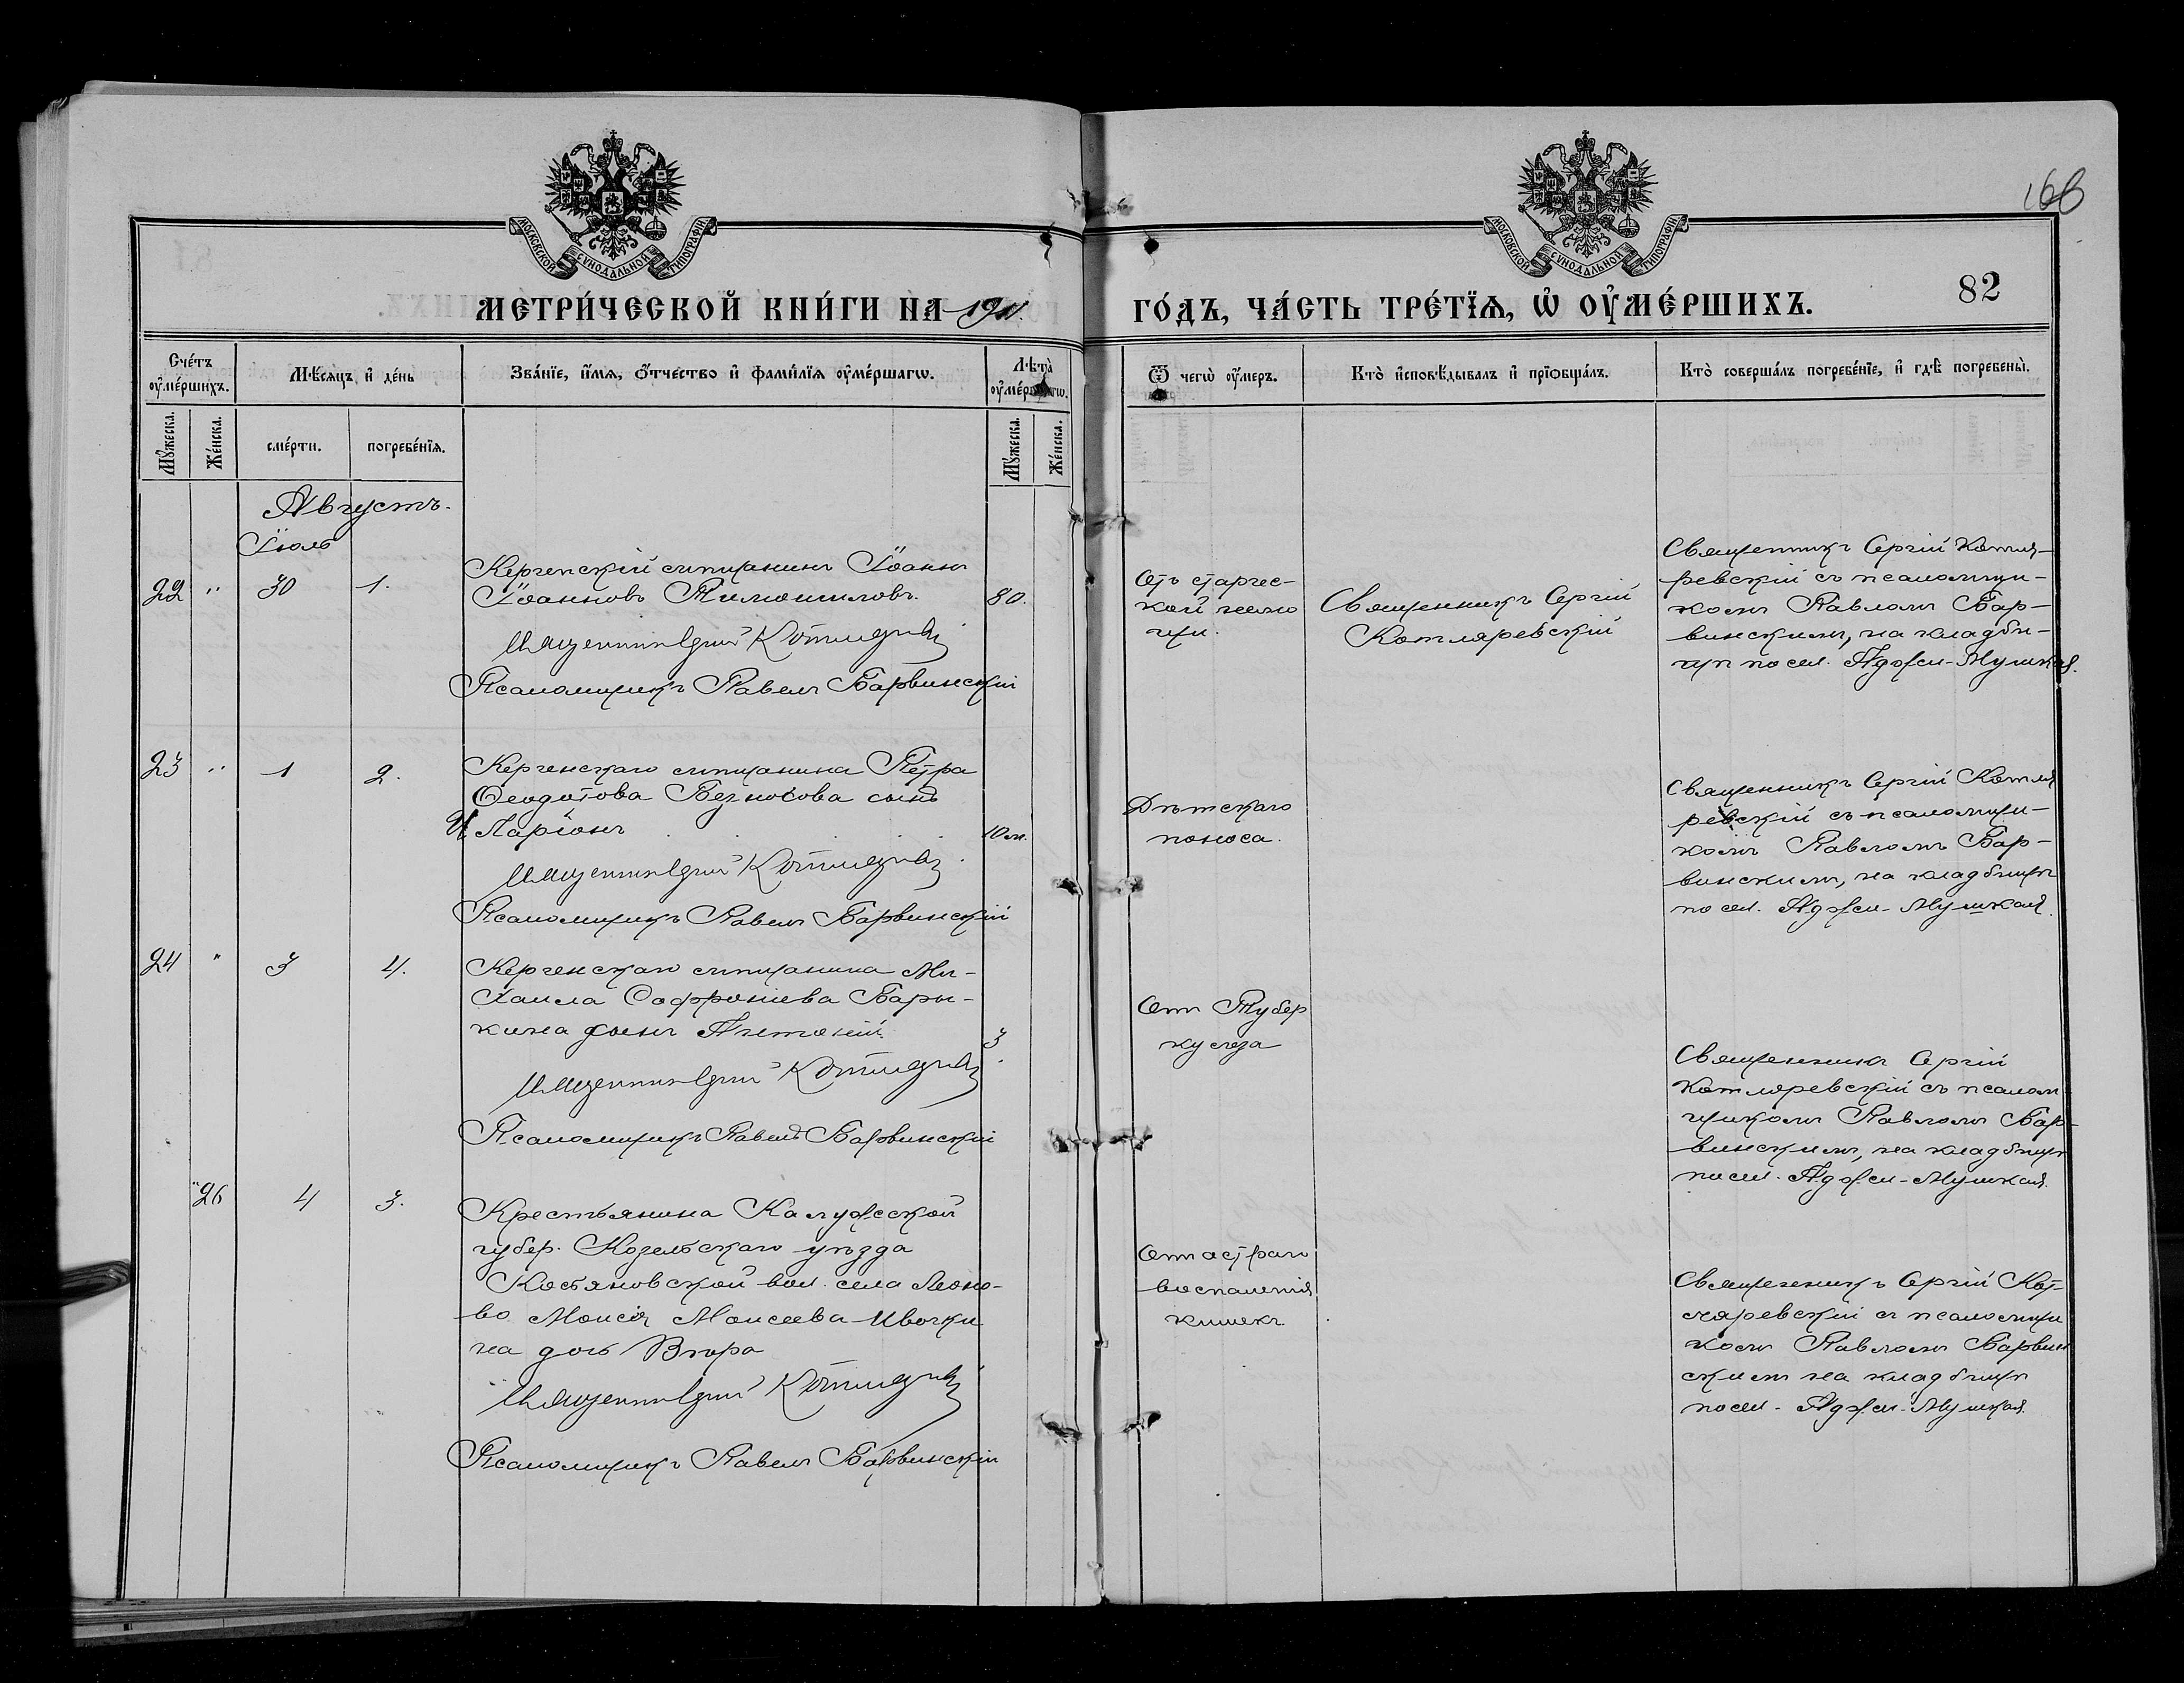 МОСКОВСКОЙ СѴНОДАЛЬНОЙ ТИПОГРАФІИ
МОСКОВСКОЙ СѴНОДАЛЬНОЙ ТИПОГРАФІИ
166
82
МЕТРИ́ЧЕСКОЙ КНИ́ГИ НА 1911
ГО́ДЪ, ЧА́СТЬ ТРЕ́ТЇѦ, Ѡ҆ ОУ҆МЕ́РШИХЪ.
Сче́тъ оу҆ме́ршихъ.
Мѣ́сяцъ и҆ де́нь
Зва́нїе, и҆́мѧ, ѻ҆́тчество и҆ фами́лїѧ оу҆ме́ршагѡ.
Лѣ́та оу҆ме́ршагѡ.
Ѿ чегѡ̀ оу҆́меръ.
Кто̀ и҆сповѣ́дывалъ и҆ прїѡбща́лъ.
Кто̀ соверша́лъ погребе́нїе, и҆ гдѣ̀ погребены̀.
Мꙋ́жеска.
Же́нска.
сме́рти.
погребе́нїѧ.
Мꙋ́жеска.
Же́нска.
Августъ.
Іюль
22 " 30 1.
Керченскій мѣщанинъ Іоаннъ
Іоанновъ Тимошиловъ. 80.
Священникъ Сергій Котляревскій
Псаломщикъ Павелъ Барвинскій
Отъ старчес-
кой немо
щи.
Священникъ Сергій
Котляревскій
Священникъ Сергій Котля-
ревскій съ псаломщи-
комъ Павломъ Бар-
винскимъ, на кладби-
щѣ посел. Аджи-Мушкая.
23 " 1 2.
Керченскаго мѣщанина Петра
Феодотова Безносова сынъ
Иларіонъ 10 м.
Священникъ Сергій Котляревскій
Псаломщикъ Павелъ Барвинскій
Дѣтскаго
поноса.
Священникъ Сергій Котля
ревскій съ псаломщи-
комъ Павломъ Бар-
винскимъ, на кладбищѣ
посел. Аджи-Мушкая.
24 " 3 4.
Керченскаго мѣщанина Ми-
хаила Софроніева Бары-
кина сынъ Антоній 3.
Священникъ Сергій Котляревскій
Псаломщикъ Павелъ Барвинскій
Отъ Тубер
кулеза
Священникъ Сергій
Котляревскій съ псалом
щикомъ Павломъ Бар-
винскимъ, на кладбищѣ
посел. Аджи-Мушкая.
" 26 4 3.
Крестьянина Калужеской
губер. Козельскаго уѣзда
вол. села Леоно-
во Моисія Моисеева Ивочки
на дочь Вѣра
Священникъ Сергій Котляревскій
Псаломщикъ Павелъ Барвинскій
Отъ астраго
воспаленія
кишекъ.
Священникъ Сергій Кот-
ляревскій съ псаломщи
комъ Павломъ Барвин
скимъ на кладбищѣ
посел. Аджи-Мушкая.